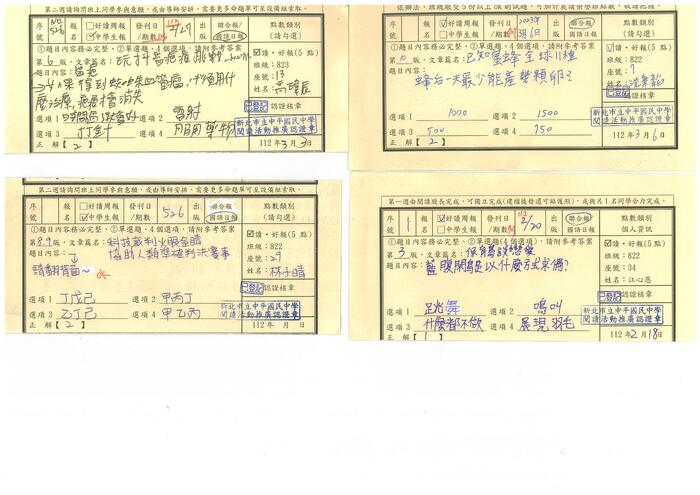 第二週請詢問班上同學參與意願，或由導師安排，需要更多命題單可至設備組索取。
序號 No. 526 報名 □好讀周報 ☑中學生報 發行日/期數 112 2/27 出版 聯合報 國語日報 點數類別(請勾選)
①題目內容務必完整、②單選題、4個選項，請附參考答案
第 6 版，文章篇名：
題目內容：
選項1 選項2 雷射
選項3 打針 選項4 服用藥物
正解【2】
☑讀‧好報(5點)
班級：822
座號：13
姓名：
已登記 認證核章
新北市立中平國民中學
閱讀活動推廣認證章
112年3月3日
序號 報名 ☑好讀周報 □中學生報 發行日/期數 2023年3月6日 出版 聯合報 國語日報 點數類別(請勾選)
①題目內容務必完整、②單選題、4個選項，請附參考答案
第 10 版，文章篇名：已知蜜蜂全球11種
題目內容：
蜂后一天最少能產幾顆卵？
選項1 1000 選項2 1500
選項3 500 選項4 750
正解【2】
☑讀‧好報(5點)
班級：822
座號：7
姓名：
已登記 認證核章
新北市立中平國民中學
閱讀活動推廣認證章
112年3月6日
第二週請詢問班上同學參與意願，或由導師安排，需要更多命題單可至設備組索取。
序號 報名 □好讀周報 ☑中學生報 發行日/期數 526 出版 聯合報 國語日報 點數類別(請勾選)
①題目內容務必完整、②單選題、4個選項，請附參考答案
第 8.9 版，文章篇名：科技裁判火眼金睛
協助人類準確判決賽事
題目內容：
請翻背面~
選項1 丁戊己 選項2 甲丙丁
選項3 乙丁己 選項4 甲乙丙
正解【2】
☑讀‧好報(5點)
班級：822
座號：27
姓名：林子晴
已登記 認證核章
新北市立中平國民中學
閱讀活動推廣認證章
112年 月 日
第一週由閱讀股長完成，可獨立完成(建檔後發還可點護照)，或與另1名同學合力完成。
序號 1 報名 ☑好讀周報 □中學生報 發行日/期數 112 2/20 出版 聯合報 國語日報 點數類別 個人資訊
①題目內容務必完整、②單選題(4個選項)、請附參考答案
第 3 版，文章篇名：
題目內容：藍腹鷴是以什麼方式求偶？
選項1 跳舞 選項2 鳴叫
選項3 什麼都不做 選項4 展現羽毛
正解【1】
☑讀‧好報(5點)
班級：822
座號：34
姓名：江心恩
已登記 認證核章
新北市立中平國民中學
閱讀活動推廣認證章
112年2月18日